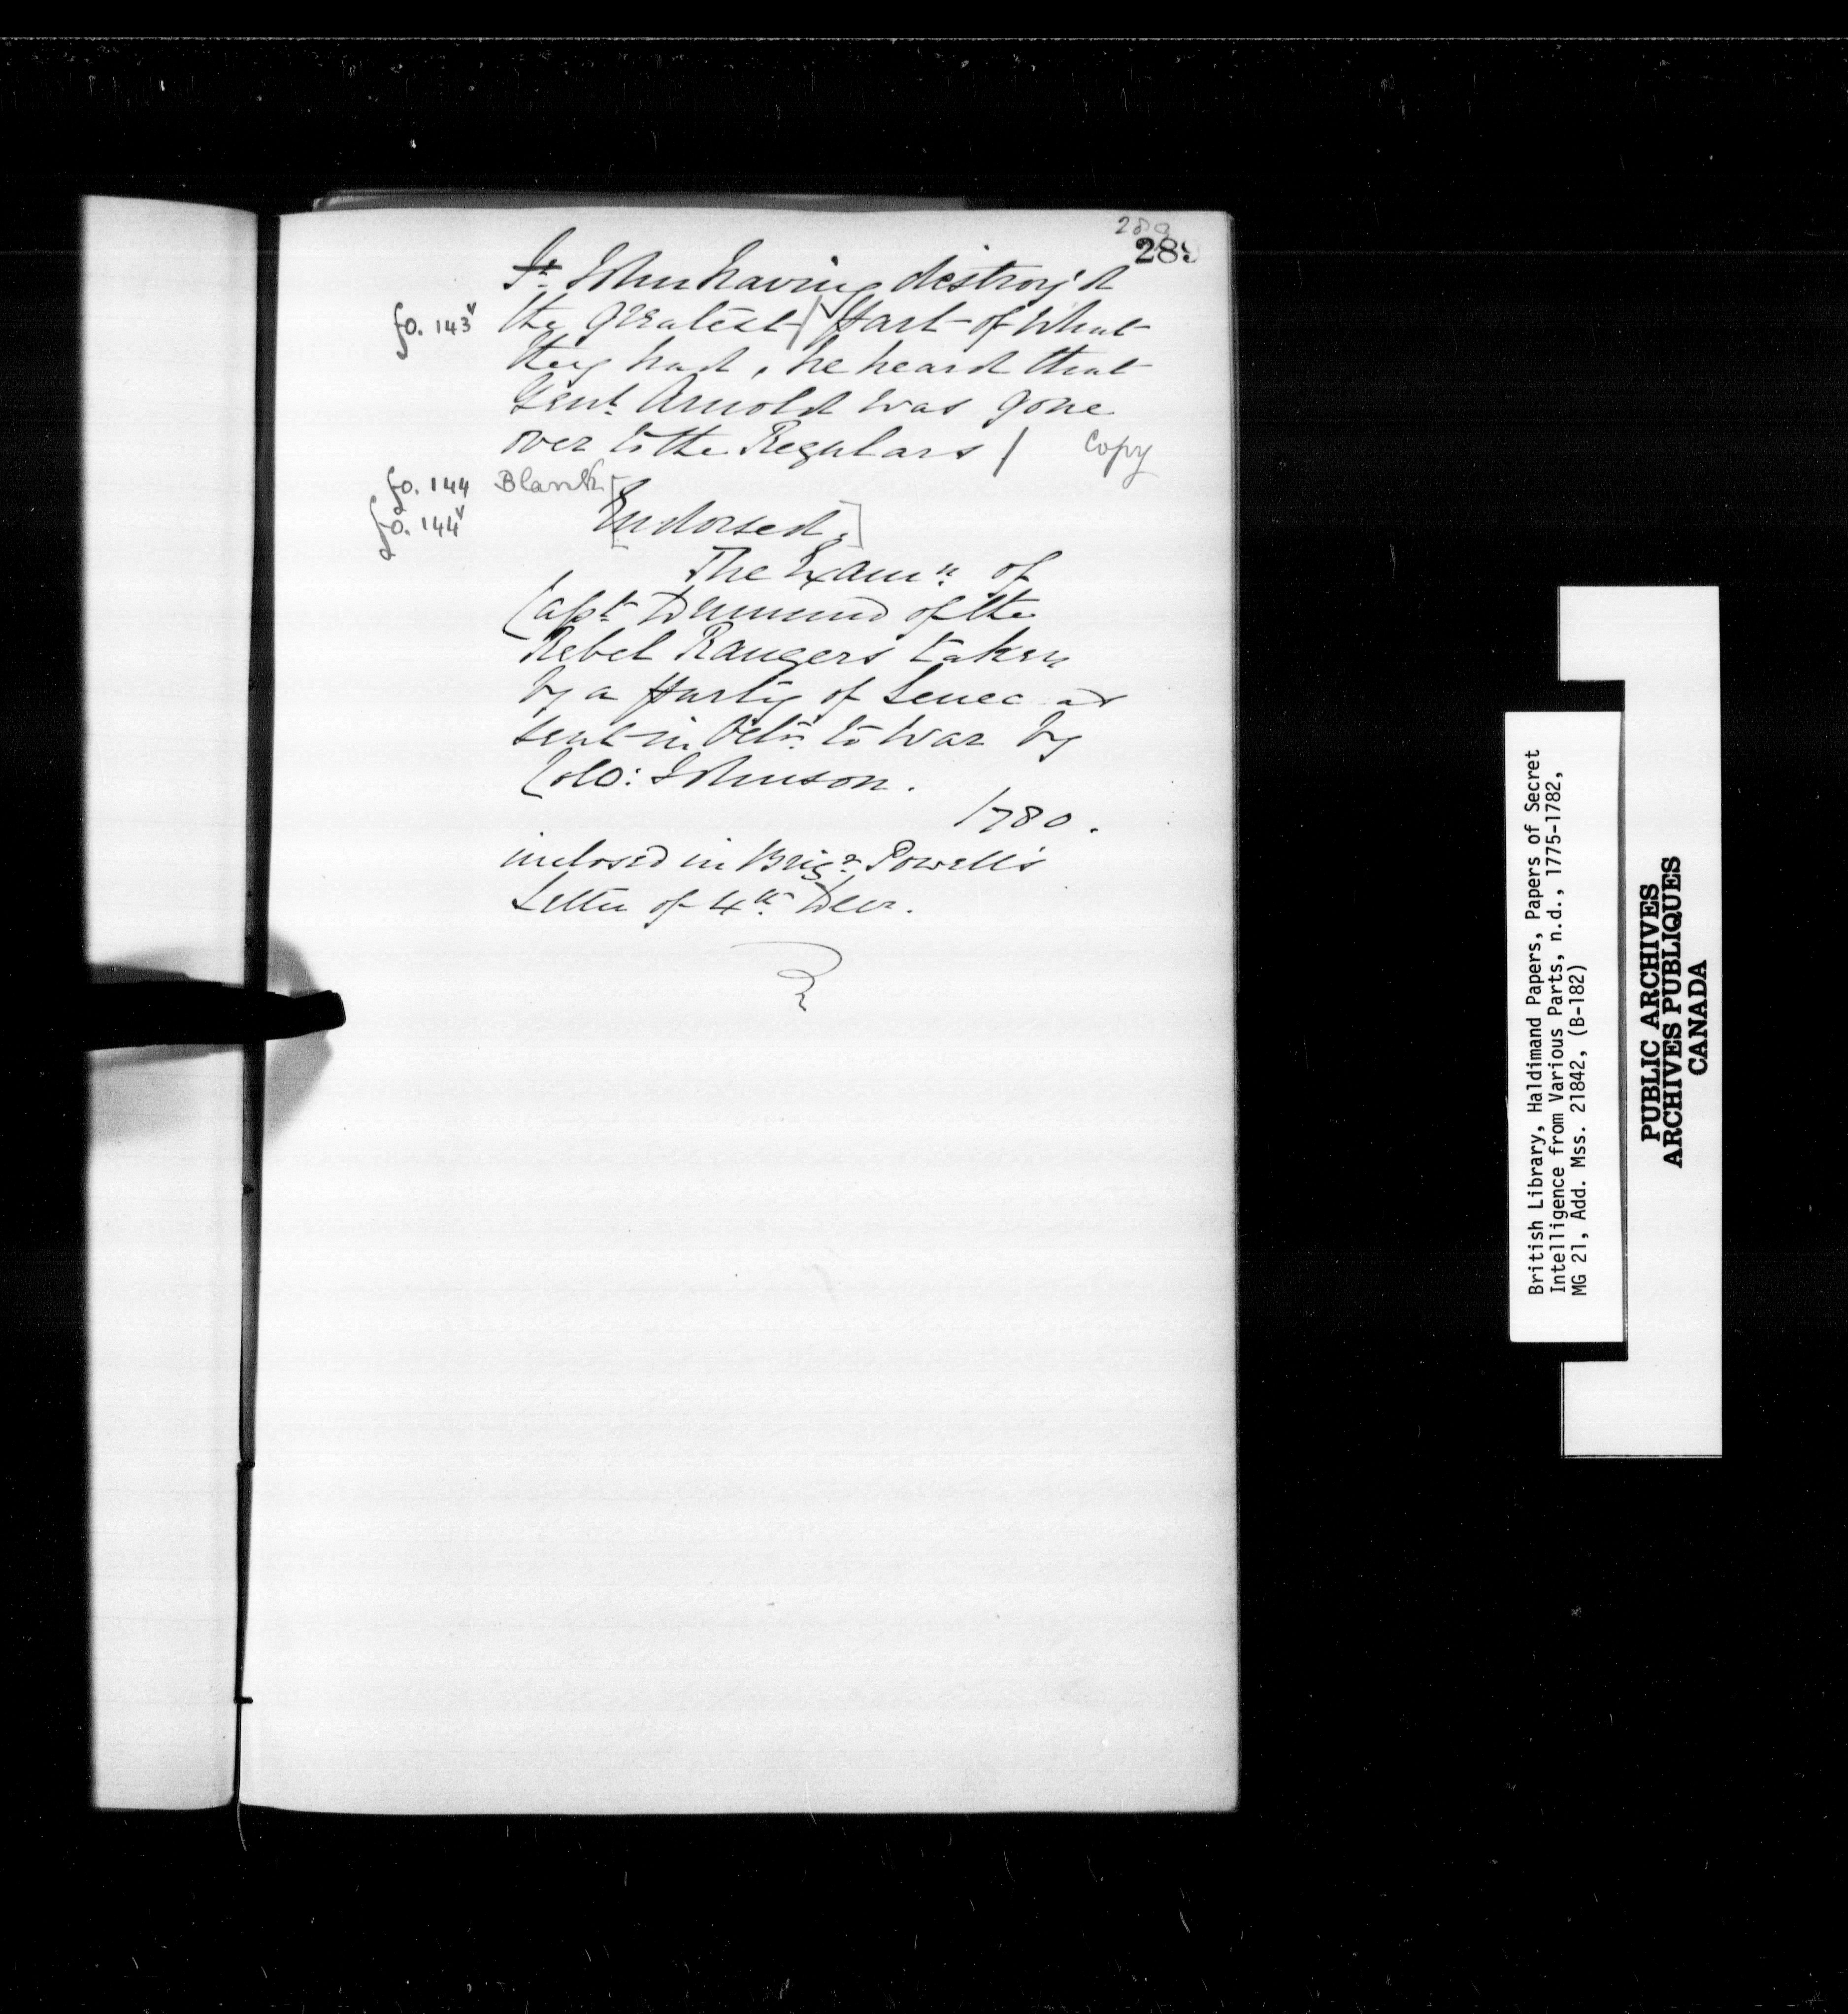 289
289
Sr John having destroy'd
fo. 143v the greatest / part of what
they had, he heard that
Genl. Arnold was gone
over to the Regulars / Copy
fo. 144 Blank
fo. 144v [Endorsed.]
The Examn. of
Capt of the
Rebel Rangers taken
by a party of Senecas
sent in Octr. to War by
Colo: Johnson.
1780.
inclosed in Brigr. Powell's
Letter of 4th. Decr.
British Library, Haldimand Papers, Papers of Secret
Intelligence from Various Parts, n.d., 1775-1782,
MG 21, Add. Mss. 21842, (B-182)
PUBLIC ARCHIVES
ARCHIVES PUBLIQUES
CANADA